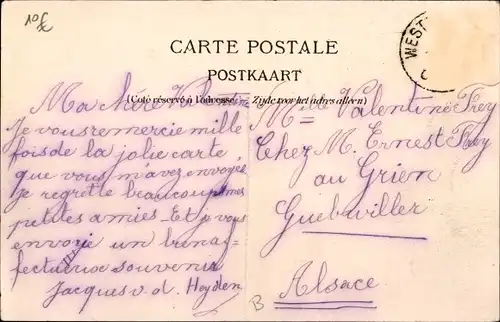 10€
WEST
CARTE POSTALE
POSTKAART
(Coté réservé à l'adresse. Zijde voor het adres alleen)
Ma chère Valentine
Je vous remercie mille
fois de la jolie carte,
que vous m'avez envoyée
Je regrette beaucoup mes
petites amies. Et je vous
envoie un bien af-
fectueux souvenir
Jacques v. d. Heyden
Mlle Valentine Frey
Chez M. Ernest Frey
au Grien
Guebwiller
Alsace
B